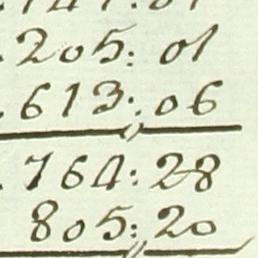 .205:01
.613:06
.764:28
805:20